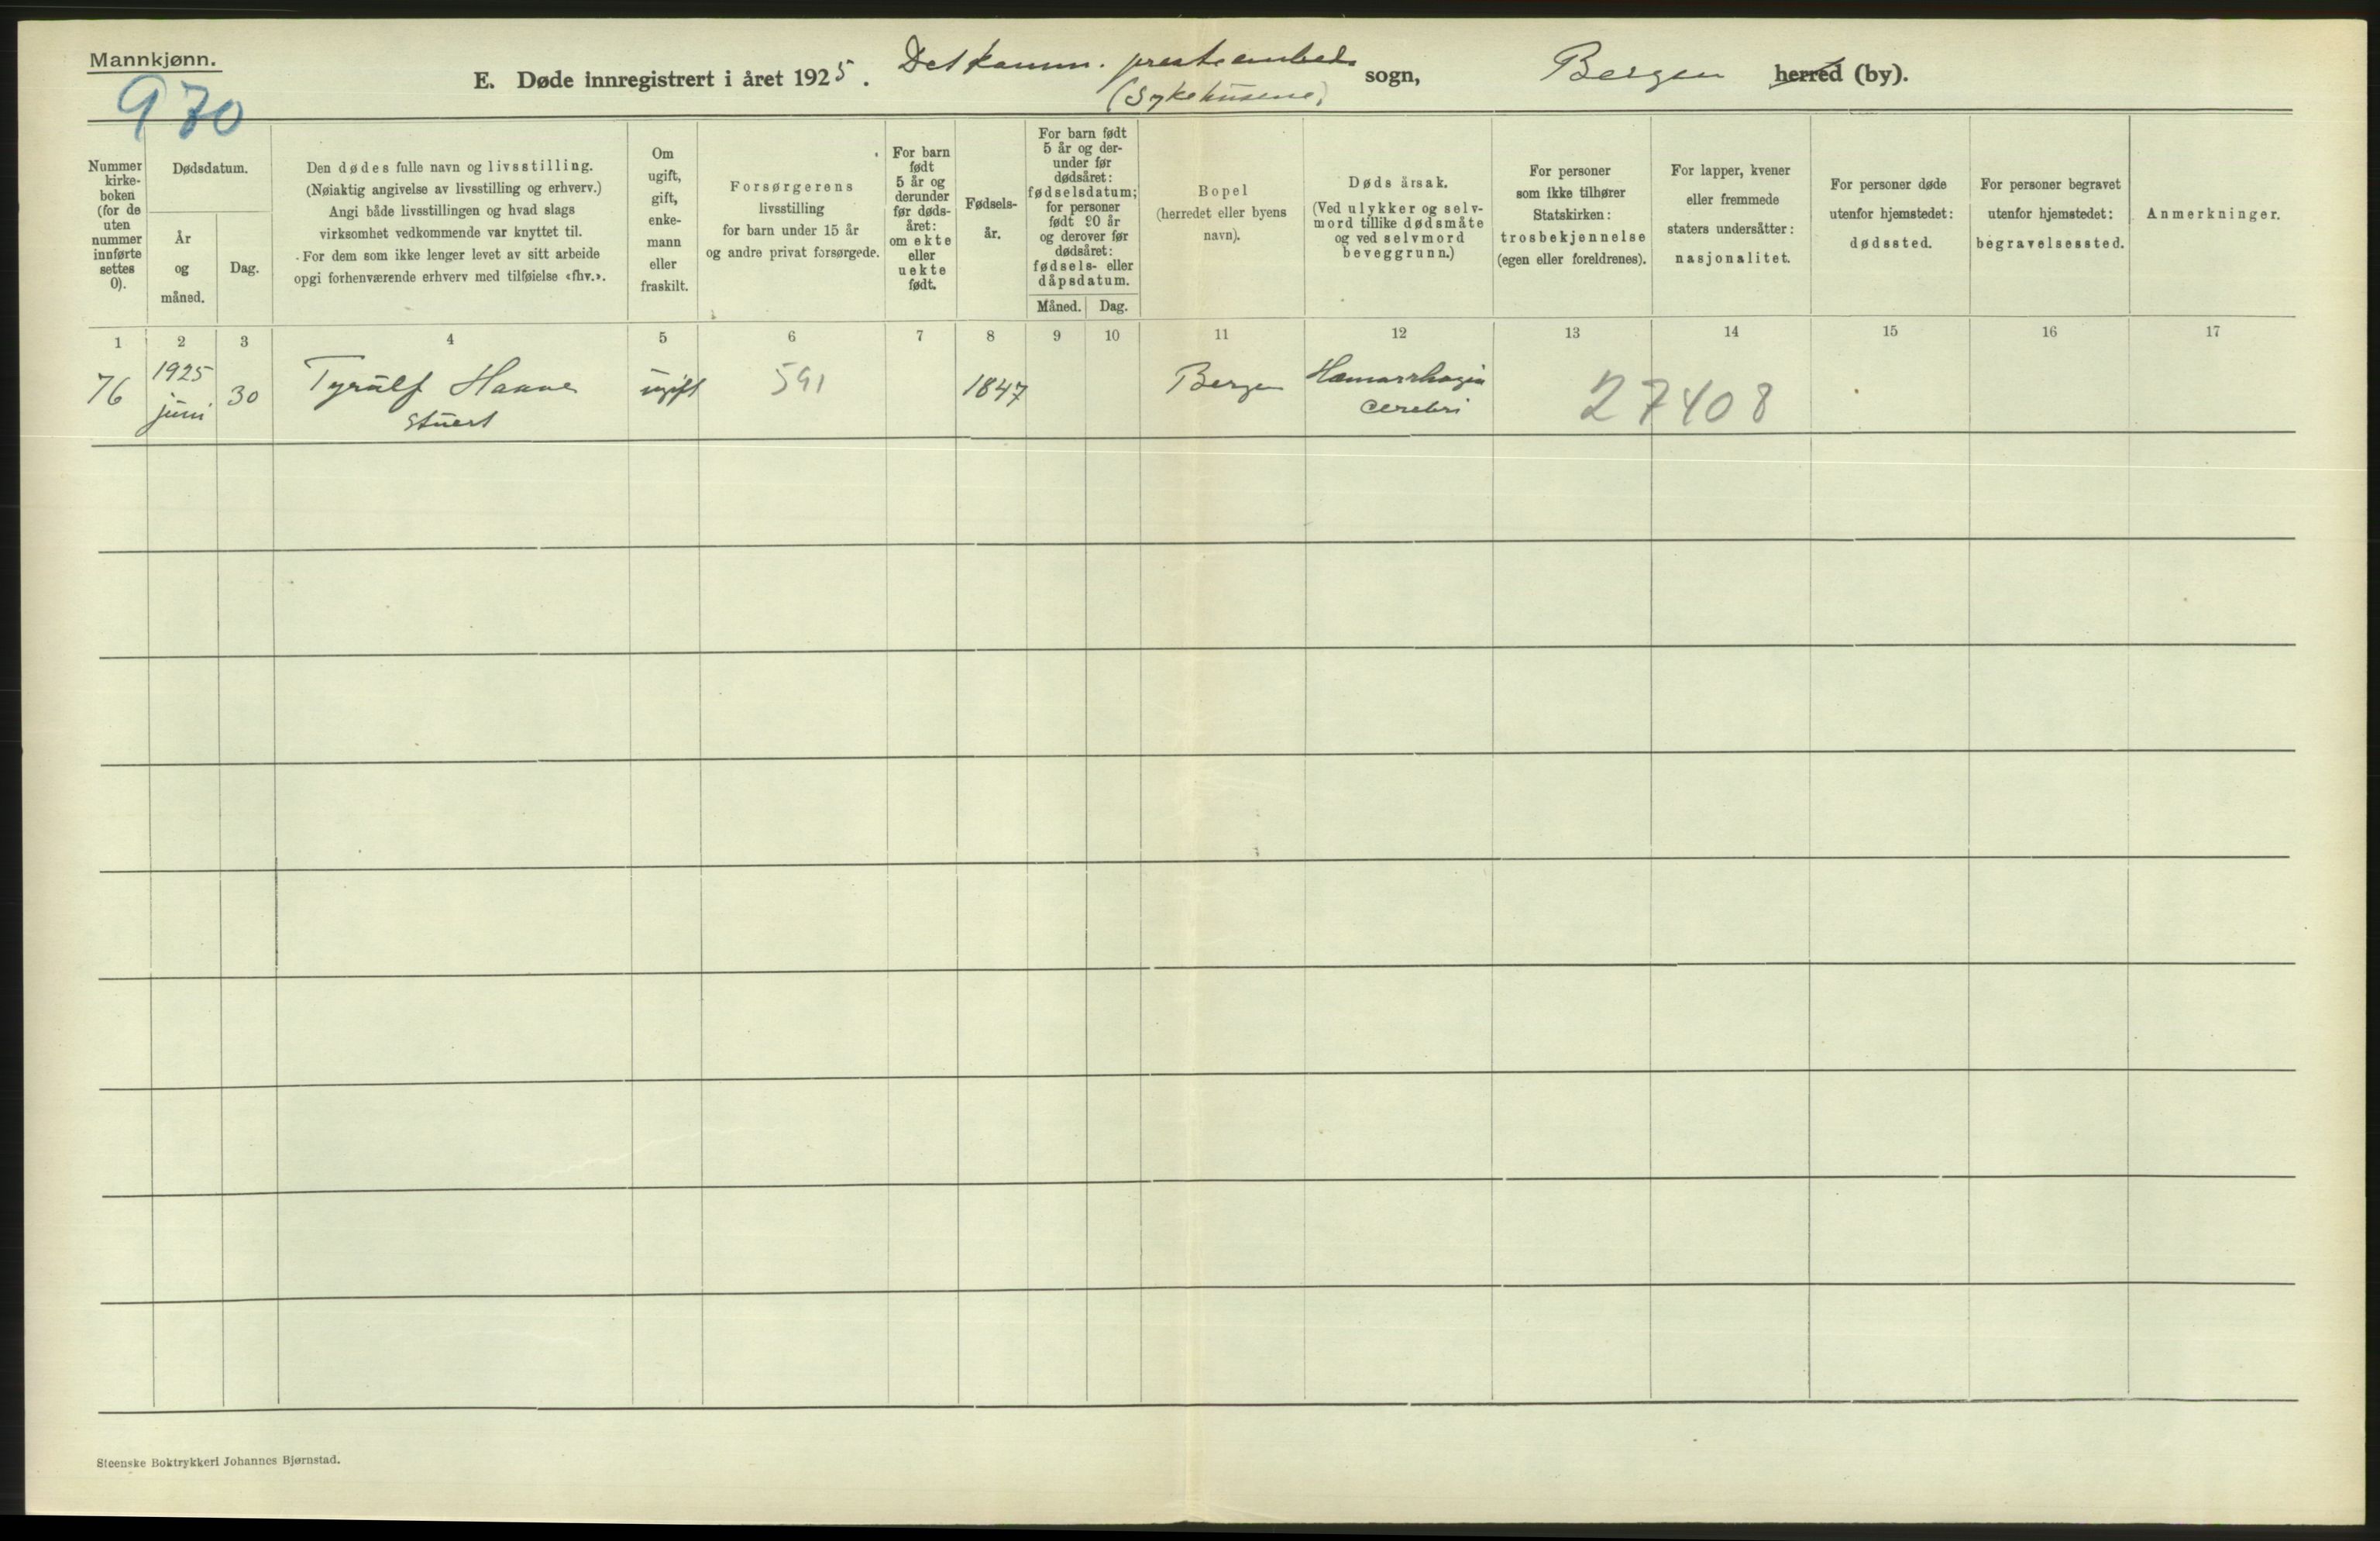 Mannkjønn.
970
E. Døde innregistrert i året 1925. Det komm. presteembede sogn, Bergen herred (by).
(Sykehusene)
Nummer
kirke-
boken
(for de
uten
nummer
innførte
settes
0).
Dødsdatum.
År
og
måned.
Dag.
Den dødes fulle navn og livsstilling.
(Nøiaktig angivelse av livsstilling og erhverv.)
Angi både livsstillingen og hvad slags
virksomhet vedkommende var knyttet til.
For dem som ikke lenger levet av sitt arbeide
opgi forhenværende erhverv med tilføielse «fhv.».
Om
ugift,
gift,
enke-
mann
eller
fraskilt.
Forsørgerens
livsstilling
for barn under 15 år
og andre privat forsørgede.
For barn
født
5 år og
derunder
før døds-
året:
om ekte
eller
uekte
født.
Fødsels-
år.
For barn født
5 år og der-
under før
dødsåret:
fødselsdatum;
for personer
født 90 år
og derover før
dødsåret:
fødsels- eller
dåpsdatum.
Måned. Dag.
Bopel
(herredet eller byens
navn).
Dødsårsak.
(Ved ulykker og selv-
mord tillike dødsmåte
og ved selvmord
beveggrunn.)
For personer
som ikke tilhører
Statskirken:
trosbekjennelse
(egen eller foreldrenes).
For lapper, kvener
eller fremmede
staters undersåtter:
nasjonalitet.
For personer døde
utenfor hjemstedet:
dødssted.
For personer begravet
utenfor hjemstedet:
begravelsessted.
Anmerkninger.
1 2 3 4 5 6 7 8 9 10 11 12 13 14 15 16 17
76 1925 juni 30 Tyrulf ugift 591 1847 Bergen Hæmorrhagia
cerebri
27408
Steenske Boktrykkeri Johannes Bjørnstad.